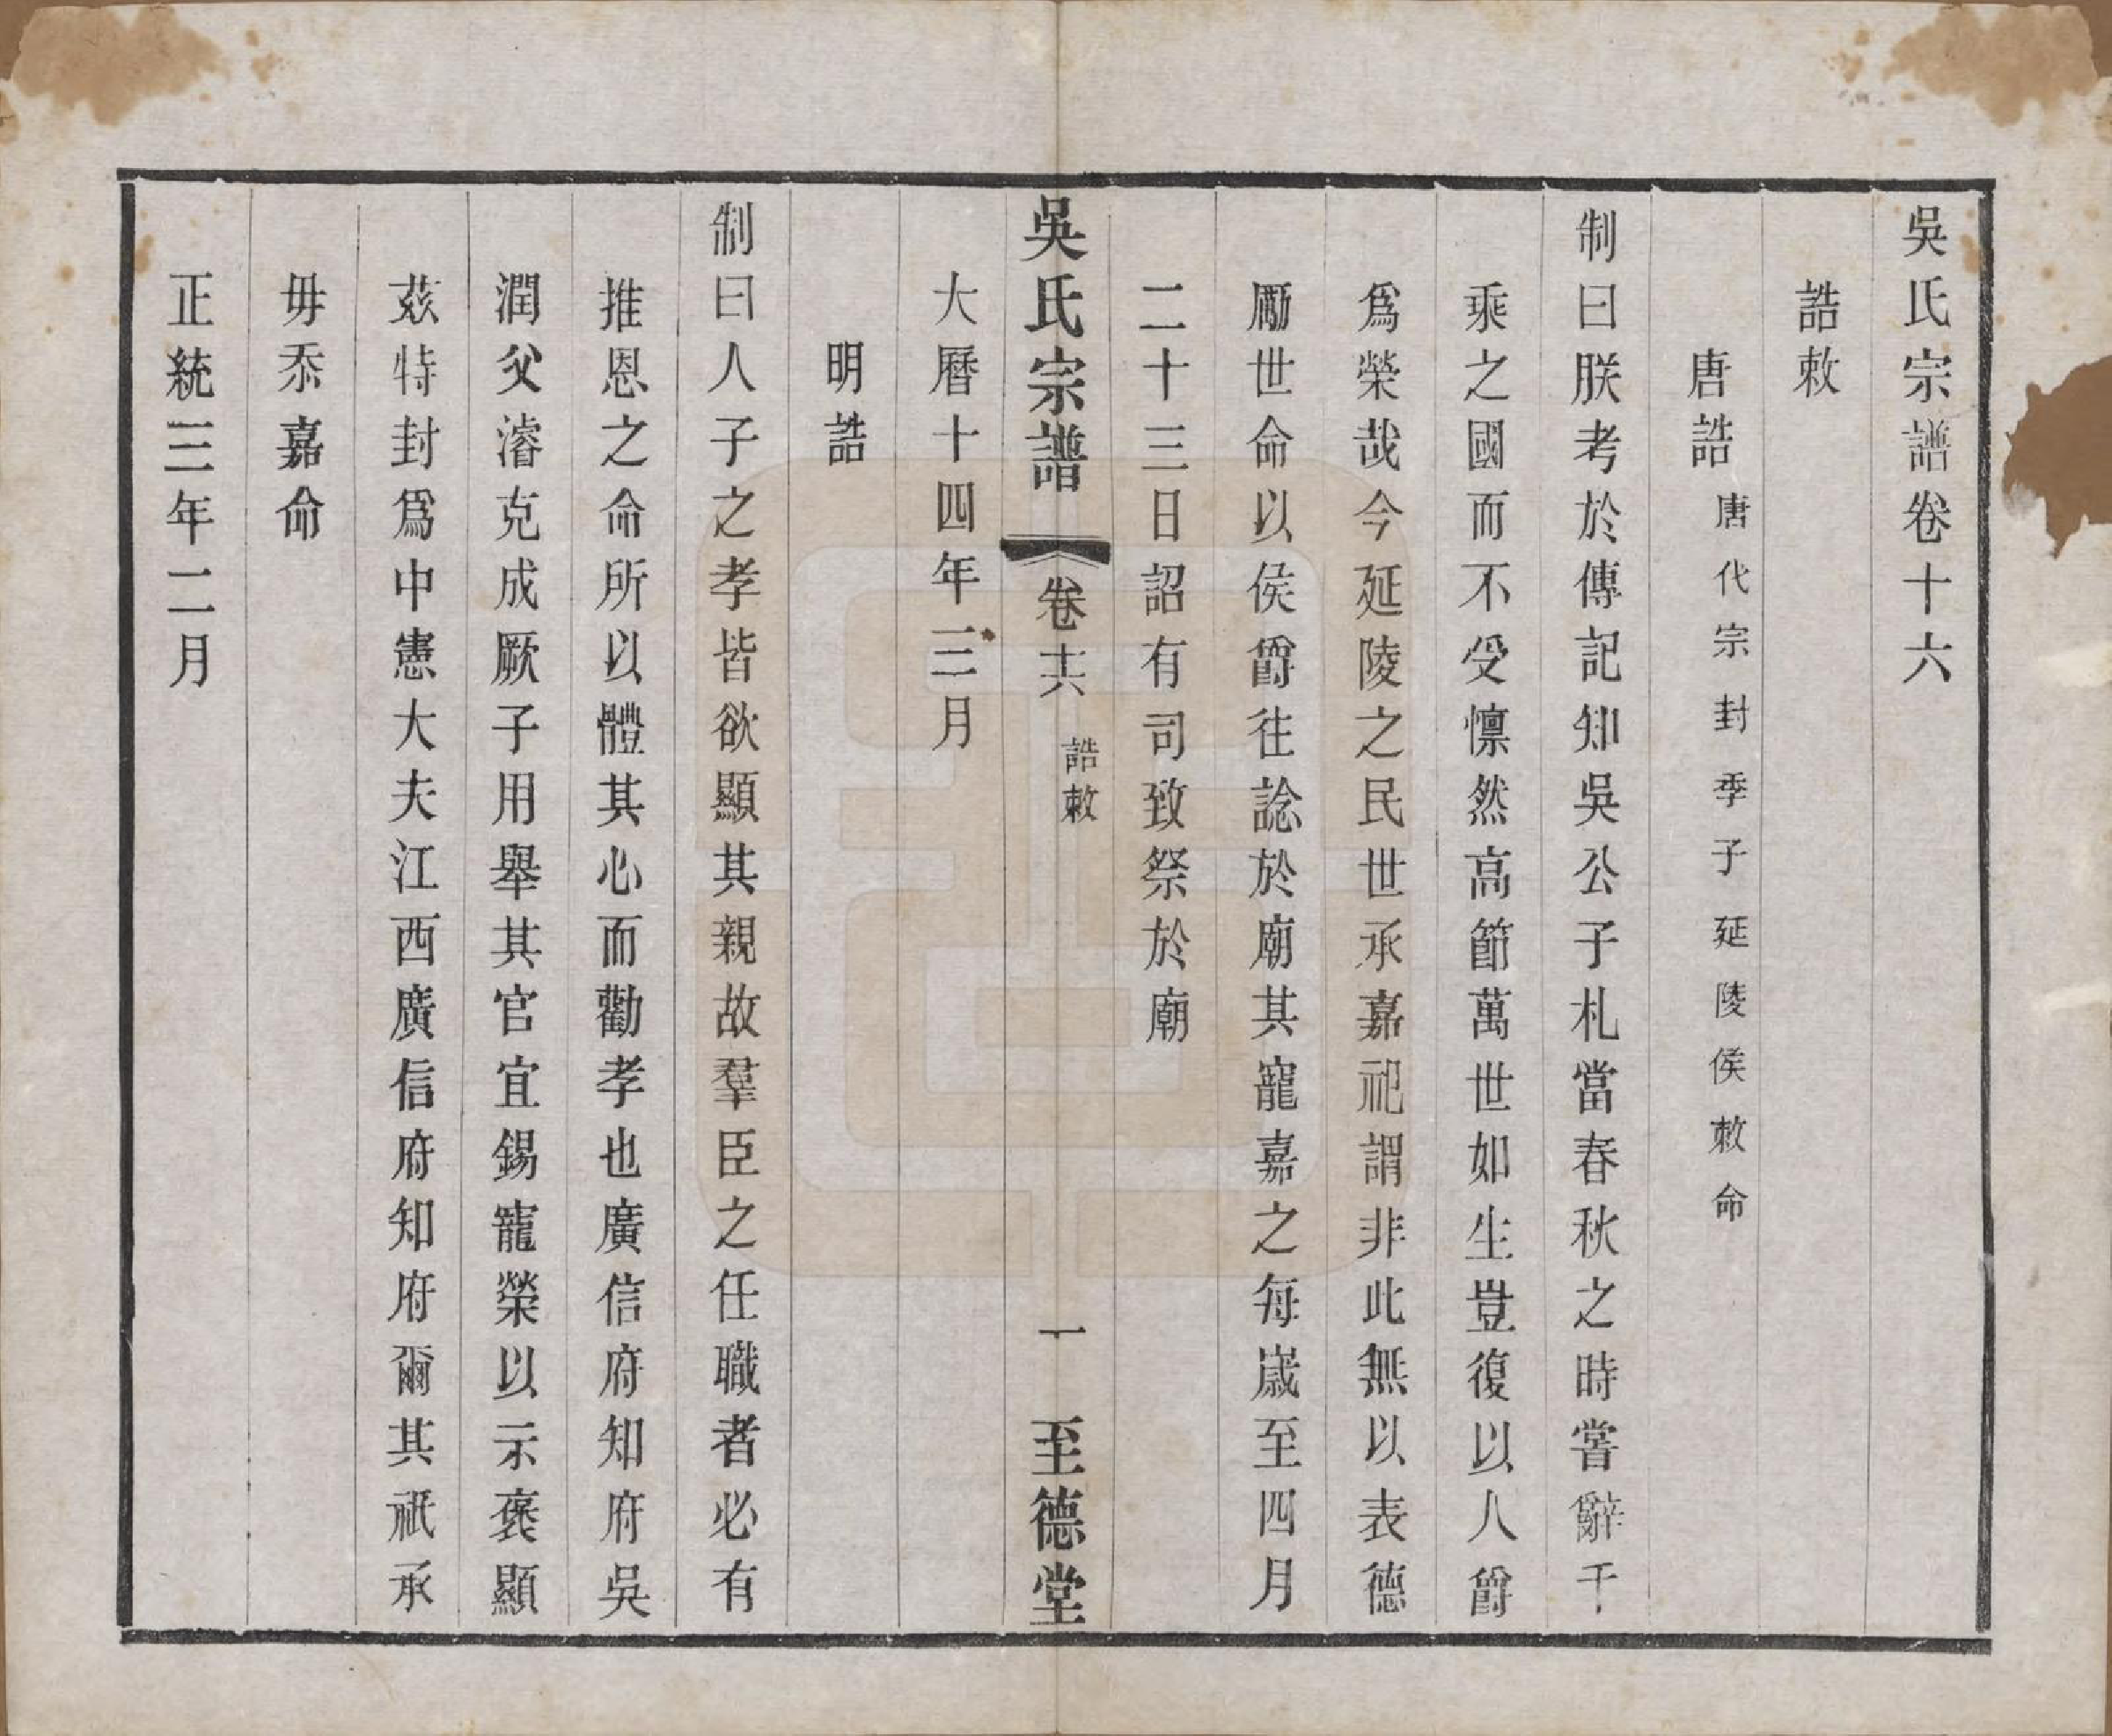 吳氏宗譜卷十六
誥敕
唐誥 唐代宗封季子延陵侯敕命
制曰朕考於傳記知吳公子札當春秋之時嘗辭千
乘之國而不受懍然高節萬世如生豈復以人爵
爲榮哉今延陵之民世承嘉祀謂非此無以表德
勵世命以侯爵往諗於廟其寵嘉之每歲至四月
二十三日詔有司致祭於廟
吳氏宗譜 卷十六 誥敕 一 至德堂
大曆十四年三月
明誥
制曰人子之孝皆欲顯其親故羣臣之任職者必有
推恩之命所以體其心而勸孝也廣信府知府吳
潤父濬克成厥子用舉其官宜錫寵榮以示褒顯
茲特封爲中憲大夫江西廣信府知府爾其祇承
毋忝嘉命
正統三年二月